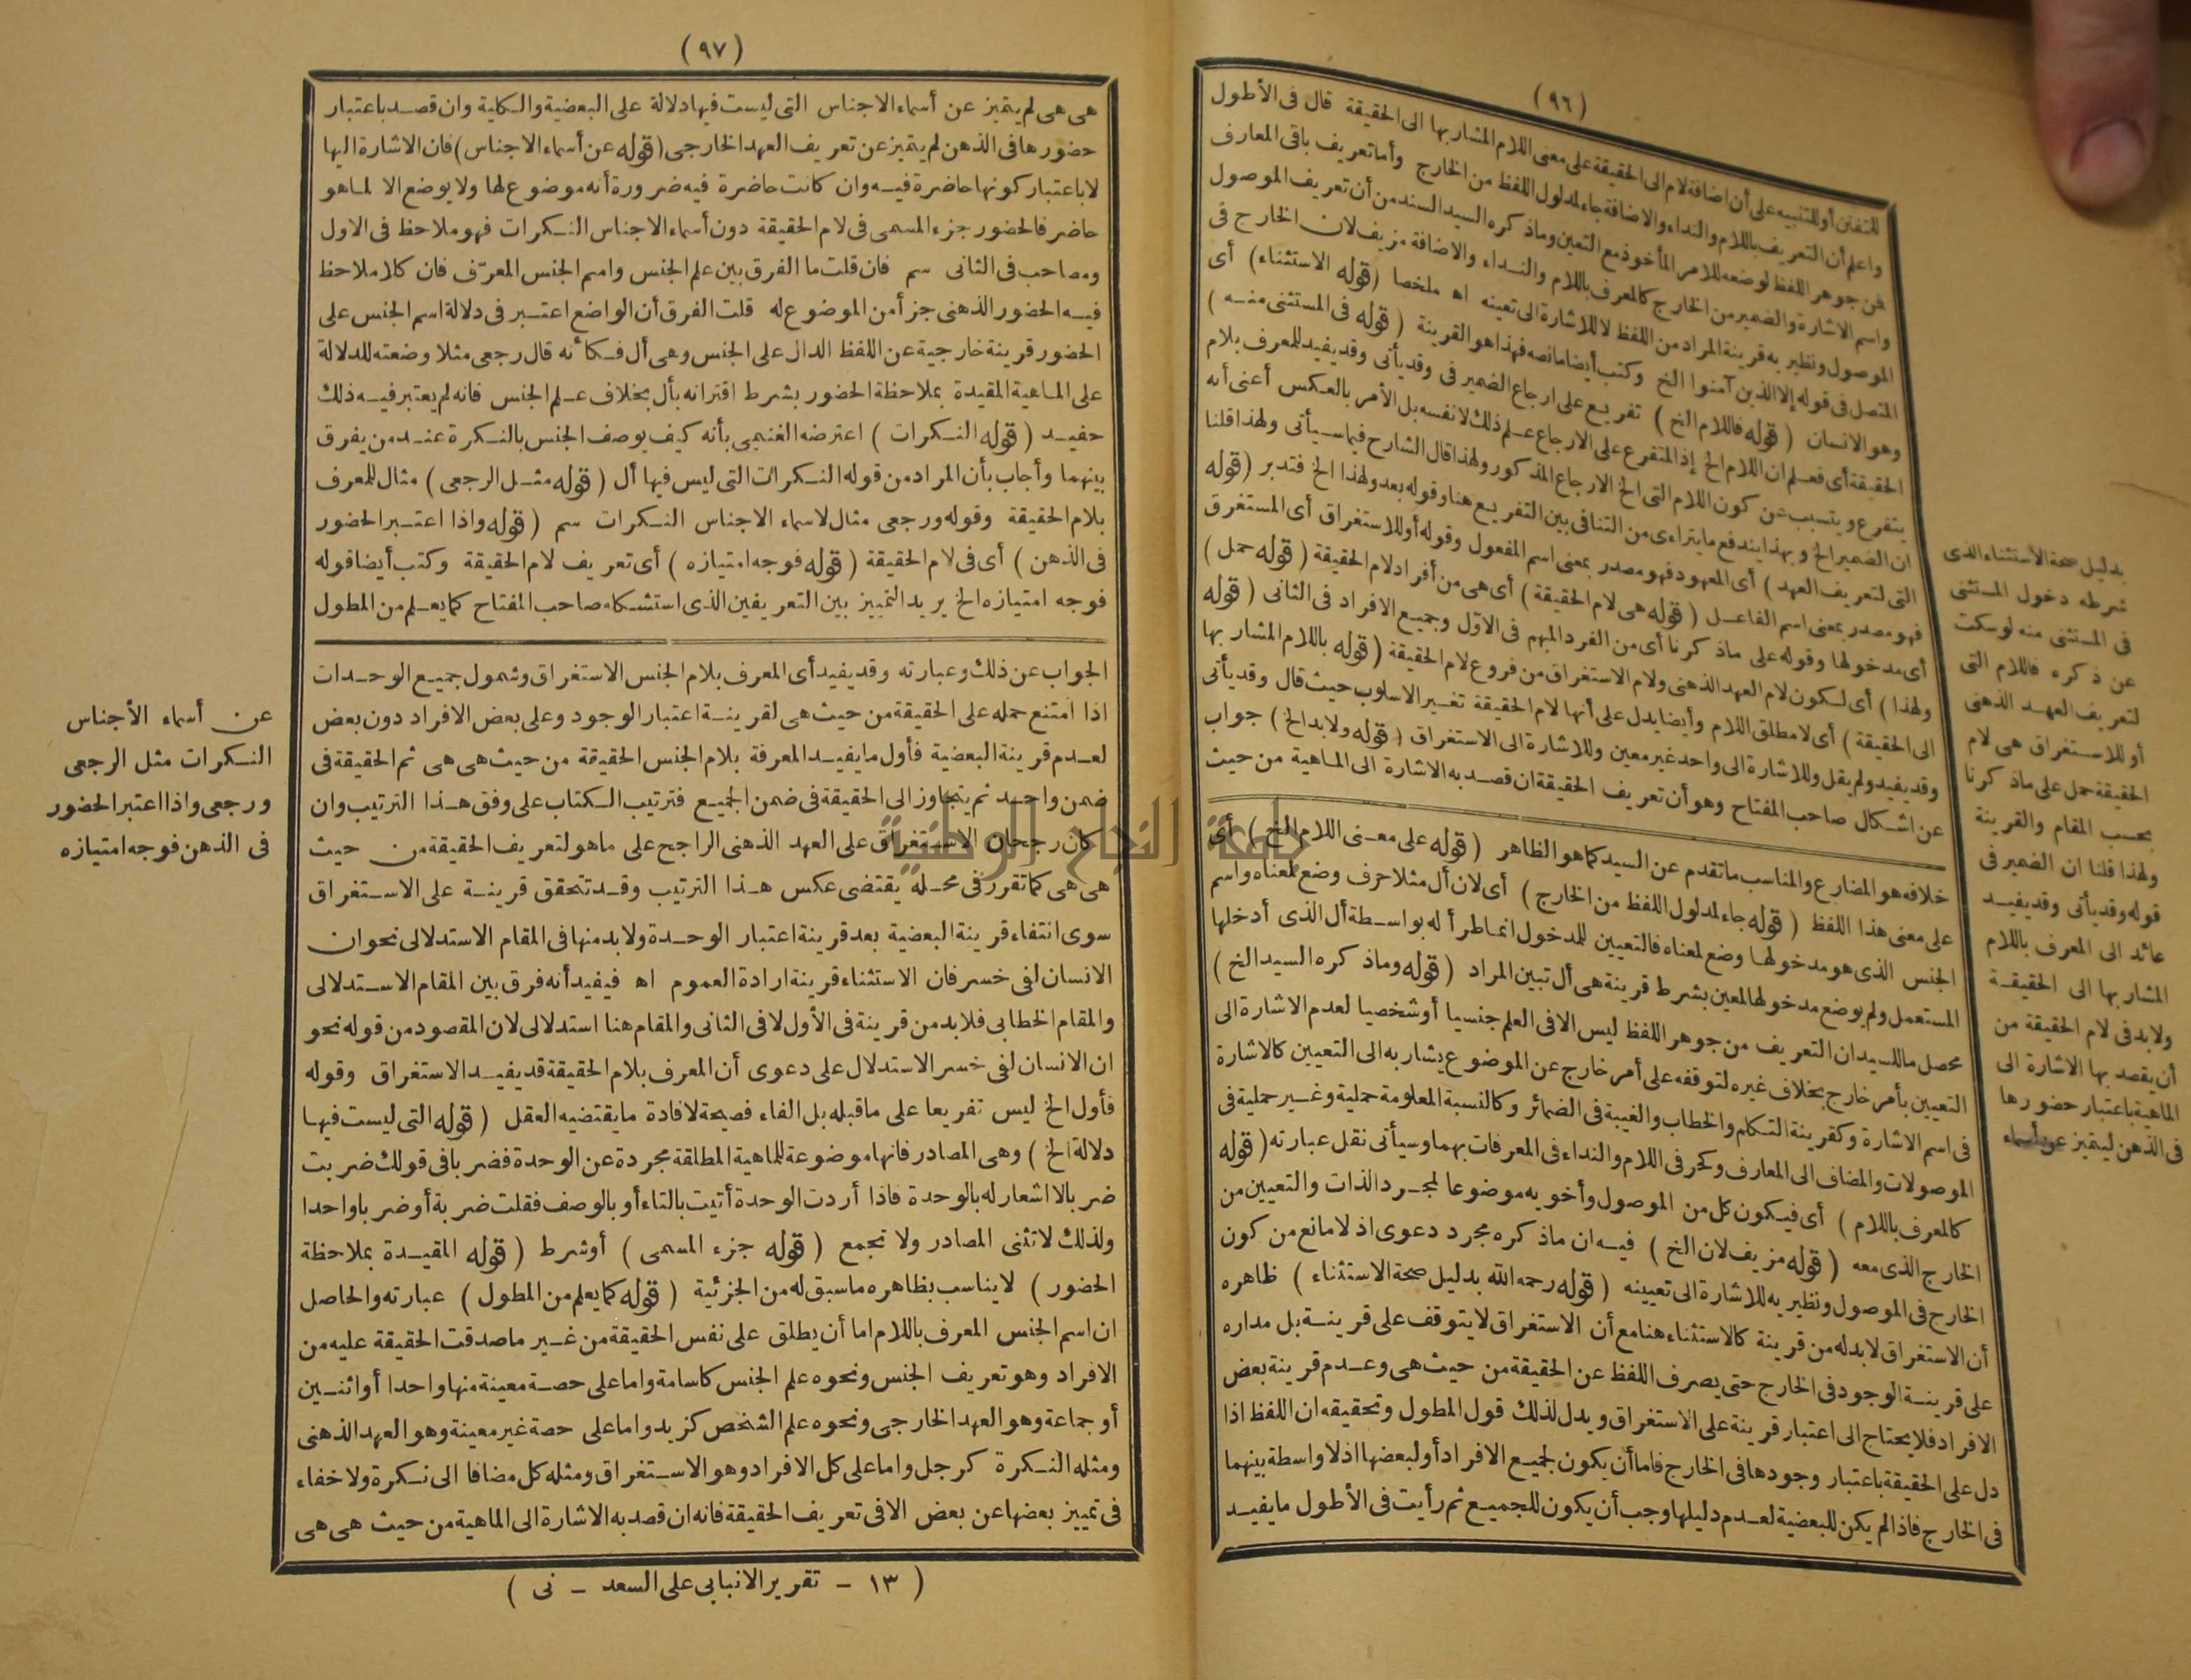 (٩٦)
للتفنن أو للتنبيه على أن اضافة لام الى الحقيقة على معنى اللام المشار بها الى الحقيقة قال فى الأطول
واعلم أن التعريف باللام والنداء والاضافة جاء لمدلول اللفظ من الخارج وأما تعريف باقى المعارف
فمن جوهر اللفظ لوضعه للامر المأخوذ مع التعين وماذكره السيد السند من أن تعريف الموصول
واسم الاشارة والضمير من الخارج كالمعرف باللام والنداء والاضافة مزيف لان الخارج فى
الموصول ونظيريه قرينة المراد من اللفظ لا للاشارة الى تعينه اه ملخصا (قوله الاستثناء) أى
المتصل فى قوله إلا الذين آمنوا الخ وكتب أيضا مانصه فهذا هو القرينة (قوله فى المستثنى منه)
وهو الانسان (قوله فاللام الخ) تفريع على ارجاع الضمير فى وقد يأتى وقد يفيد للمعرف بلام
الحقيقة أى فعلم ان اللام الخ إذ المتفرع على الارجاع علم ذلك لا نفسه بل الأمر بالعكس أعنى أنه
يتفرع ويتسبب عن كون اللام التى الخ الارجاع المذكور ولهذا قال الشارح فيما سيأتى ولهذا قلنا
ان الضمير الخ وبهذا يندفع ما يتراءى من التنافى بين التفريع هنا وقوله بعد ولهذا الخ فتدبر (قوله
التى لتعريف العهد) أى المعهود فهو مصدر بمعنى اسم المفعول وقوله أو للاستغراق أى المستغرق
فهو مصدر بمعنى اسم الفاعل (قوله هى لام الحقيقة) أى هى من أفراد لام الحقيقة (قوله حمل)
أى مدخولها وقوله على ماذكرنا أى من الفرد المبهم فى الاوّل وجميع الافراد فى الثانى (قوله
ولهذا) أى لكون لام العهد الذهنى ولام الاستغراق من فروع لام الحقيقة (قوله باللام المشار بها
الى الحقيقة) أى لا مطلق اللام وأيضا يدل على أنها لام الحقيقة تغيير الاسلوب حيث قال وقد يأتى
وقد يفيد ولم يقل وللاشارة الى واحد غير معين وللاشارة الى الاستغراق (قوله ولابد الخ) جواب
عن اشكال صاحب المفتاح وهو أن تعريف الحقيقة ان قصد به الاشارة الى الماهية من حيث
خلافه هو المضارع والمناسب ماتقدم عن السيد كما هو الظاهر (قوله على معنى اللام الخ) أى
على معنى هذا اللفظ (قوله جاء لمدلول اللفظ من الخارج) أى لان أل مثلا حرف وضع لمعناه واسم
الجنس الذى هو مدخولها وضع لمعناه فالتعيين للمدخول انما طرأ له بواسطة أل الذى أدخلها
المستعمل ولم يوضع مدخولها لمعين بشرط قرينة هى أل تبين المراد (قوله وماذكره السيد الخ)
محصل ماللسيد ان التعريف من جوهر اللفظ ليس الا فى العلم جنسيا أو شخصيا لعدم الاشارة الى
التعيين بأمر خارج بخلاف غيره لتوقفه على أمر خارج عن الموضوع يشار به الى التعيين كالاشارة
فى اسم الاشارة وكقرينة التكلم والخطاب والغيبة فى الضمائر وكالنسبة المعلومة حملية وغير حملية فى
الموصولات والمضاف الى المعارف وكحرفى اللام والنداء فى المعرفات بهما وسيأتى نقل عبارته (قوله
كالمعرف باللام) أى فيكون كل من الموصول وأخويه موضوعا لمجرد الذات والتعيين من
الخارج الذى معه (قوله مزيف لان الخ) فيه ان ماذكره مجرد دعوى اذ لا مانع من كون
الخارج فى الموصول ونظيريه للاشارة الى تعيينه (قوله رحمه الله بدليل صحة الاستثناء) ظاهره
أن الاستغراق لابد له من قرينة كالاستثناء هنا مع أن الاستغراق لا يتوقف على قرينة بل مداره
على قرينة الوجود فى الخارج حتى يصرف اللفظ عن الحقيقة من حيث هى وعدم قرينة بعض
الافراد فلا يحتاج الى اعتبار قرينة على الاستغراق ويدل لذلك قول المطول وتحقيقه ان اللفظ اذا
دل على الحقيقة باعتبار وجودها فى الخارج فاما أن يكون لجميع الافراد أو لبعضها اذ لا واسطة بينهما
فى الخارج فاذا لم يكن للبعضية لعدم دليلها وجب أن يكون للجميع ثم رأيت فى الأطول ما يفيد
بدليل صحة الاستثناء الذى
شرطه دخول المستثنى
فى المستثنى منه لو سكت
عن ذكره فاللام التى
لتعريف العهد الذهنى
أو للاستغراق هى لام
الحقيقة حمل على ماذكرنا
بحسب المقام والقرينة
ولهذا قلنا ان الضمير فى
قوله وقد يأتى وقد يفيد
عائد الى المعرف باللام
المشار بها الى الحقيقة
ولابد فى لام الحقيقة من
أن يقصد بها الاشارة الى
الماهية باعتبار حضورها
فى الذهن ليتميز عن أسماء
(٩٧)
هى هى لم يتميز عن أسماء الاجناس التى ليست فيها دلالة على البعضية والكلية وان قصد باعتبار
حضورها فى الذهن لم يتميز عن تعريف العهد الخارجى (قوله عن أسماء الاجناس) فان الاشارة اليها
لا باعتبار كونها حاضرة فيه وان كانت حاضرة فيه ضرورة أنه موضوع لها ولا يوضع الا لما هو
حاضر فالحضور جزء المسمى فى لام الحقيقة دون أسماء الاجناس النكرات فهو ملاحظ فى الاول
ومصاحب فى الثانى سم فان قلت ما الفرق بين علم الجنس واسم الجنس المعرّف فان كلا ملاحظ
فيه الحضور الذهنى جزأ من الموضوع له قلت الفرق أن الواضع اعتبر فى دلالة اسم الجنس على
الحضور قرينة خارجية عن اللفظ الدال على الجنس وهى أل فكأنه قال رجعى مثلا وضعته للدلالة
على الماهية المقيدة بملاحظة الحضور بشرط اقترانه بأل بخلاف علم الجنس فانه لم يعتبر فيه ذلك
حفيد (قوله النكرات) اعترضه الغنيمى بأنه كيف يوصف الجنس بالنكرة عند من يفرق
بينهما وأجاب بأن المراد من قوله النكرات التى ليس فيها أل (قوله مثل الرجعى) مثال للمعرف
بلام الحقيقة وقوله ورجعى مثال لاسماء الاجناس النكرات سم (قوله واذا اعتبر الحضور
فى الذهن) أى فى لام الحقيقة (قوله فوجه امتيازه) أى تعريف لام الحقيقة وكتب أيضا قوله
فوجه امتيازه الخ يريد التمييز بين التعريفين الذى استشكله صاحب المفتاح كما يعلم من المطول
الجواب عن ذلك وعبارته وقد يفيد أى المعرف بلام الجنس الاستغراق وشمول جميع الوحدات
اذا امتنع حمله على الحقيقة من حيث هى لقرينة اعتبار الوجود وعلى بعض الافراد دون بعض
لعدم قرينة البعضية فأول ما يفيد المعرفة بلام الجنس الحقيقة من حيث هى هى ثم الحقيقة فى
ضمن واحد ثم يتجاوز الى الحقيقة فى ضمن الجميع فترتيب الكتاب على وفق هذا الترتيب وان
كان رجحان الاستغراق على العهد الذهنى الراجح على ما هو لتعريف الحقيقة من حيث
هى هى كما تقرر فى محله يقتضى عكس هذا الترتيب وقد تتحقق قرينة على الاستغراق
سوى انتفاء قرينة البعضية بعد قرينة اعتبار الوحدة ولابد منها فى المقام الاستدلالى نحو ان
الانسان لفى خسر فان الاستثناء قرينة ارادة العموم اه فيفيد أنه فرق بين المقام الاستدلالى
والمقام الخطابى فلابد من قرينة فى الأول لا فى الثانى والمقام هنا استدلالى لان المقصود من قوله نحو
ان الانسان لفى خسر الاستدلال على دعوى أن المعرف بلام الحقيقة قد يفيد الاستغراق وقوله
فأول الخ ليس تفريعا على ماقبله بل الفاء فصيحة لافادة ما يقتضيه العقل (قوله التى ليست فيها
دلالة الخ) وهى المصادر فانها موضوعة للماهية المطلقة مجردة عن الوحدة فضربا فى قولك ضربت
ضربا لا اشعار له بالوحدة فاذا أردت الوحدة أتيت بالتاء أو بالوصف فقلت ضربة أو ضربا واحدا
ولذلك لا تثنى المصادر ولا تجمع (قوله جزء المسمى) أو شرط (قوله المقيدة بملاحظة
الحضور) لا يناسب بظاهره ماسبق له من الجزئية (قوله كما يعلم من المطول) عبارته والحاصل
ان اسم الجنس المعرف باللام اما أن يطلق على نفس الحقيقة من غير ما صدقت الحقيقة عليه من
الافراد وهو تعريف الجنس ونحوه علم الجنس كاسامة واما على حصة معينة منها واحدا أو اثنين
أو جماعة وهو العهد الخارجى ونحوه علم الشخص كزيد واما على حصة غير معينة وهو العهد الذهنى
ومثله النكرة كرجل واما على كل الافراد وهو الاستغراق ومثله كل مضافا الى نكرة ولا خفاء
فى تمييز بعضها عن بعض الا فى تعريف الحقيقة فانه ان قصد به الاشارة الى الماهية من حيث هى هى
عن أسماء الأجناس
النكرات مثل الرجعى
ورجعى واذا اعتبر الحضور
فى الذهن فوجه امتيازه
(١٣ - تقرير الانبابى على السعد - نى)
جامعة النجاح الوطنية